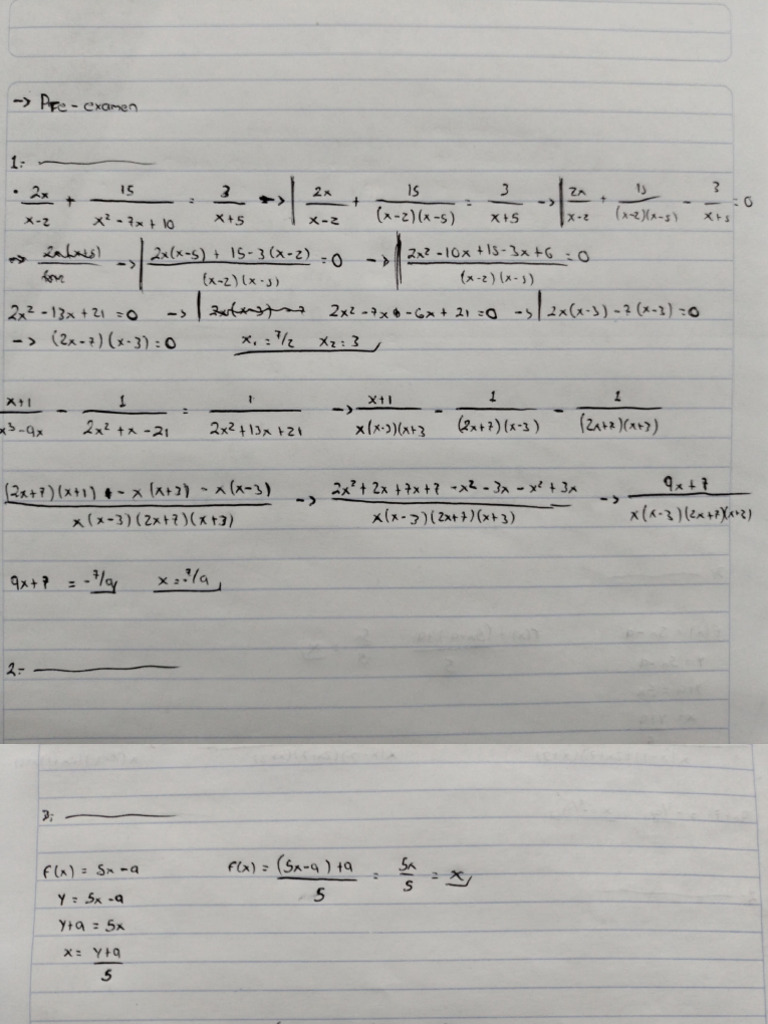 -> Pre-examen
1.-
• 2x/(x-2) + 15/(x²-7x+10) = 3/(x+5) -> | 2x/(x-2) + 15/((x-2)(x-5)) = 3/(x+5) -> | 2x/(x-2) + 15/((x-2)(x-5)) - 3/(x+5) = 0
-> | (2x(x-5) + 15 - 3(x-2))/((x-2)(x-5)) = 0 -> | (2x² - 10x + 15 - 3x + 6)/((x-2)(x-5)) = 0
2x² - 13x + 21 = 0 -> | 2x² - 7x - 6x + 21 = 0 -> | 2x(x-3) - 7(x-3) = 0
-> (2x-7)(x-3) = 0 x₁ = 7/2 x₂ = 3
(x+1)/(x³-9x) - 1/(2x²+x-21) = 1/(2x²+13x+21) -> (x+1)/(x(x-3)(x+3) - 1/((2x+7)(x-3)) - 1/((2x+7)(x+3))
((2x+7)(x+1) - x(x+3) - x(x-3))/(x(x-3)(2x+7)(x+3)) -> (2x² + 2x + 7x + 7 - x² - 3x - x² + 3x)/(x(x-3)(2x+7)(x+3)) -> (9x+7)/(x(x-3)(2x+7)(x+3))
9x+7 = -7/9 x = -7/9
2.-
3.
f(x) = 5x-9 f(x) = ((5x-9)+9)/5 = 5x/5 = x
y = 5x-9
y+9 = 5x
x = (y+9)/5